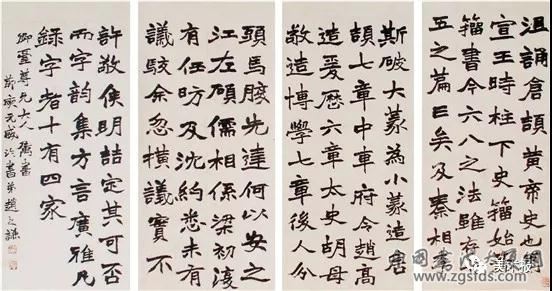 沮誦倉頡黃帝史也
宣王時柱下史籀始
籀書今六八之法雖存
五之篇矣及秦相李
斯破大篆為小篆造
頡七章中車府令趙高
造爰歷六章太史胡母
敬造博學七章後人分
頭馬腹先達何以安之
江左碩儒相係梁初復
有任昉及沈約悉未有
議駮余忽橫議實不
許敬侯明詰定其可否
而字韵集方言廣雅凡
録字者十有四家
尊兄大人
書弟趙之謙
美术报
www.zgsfds.com